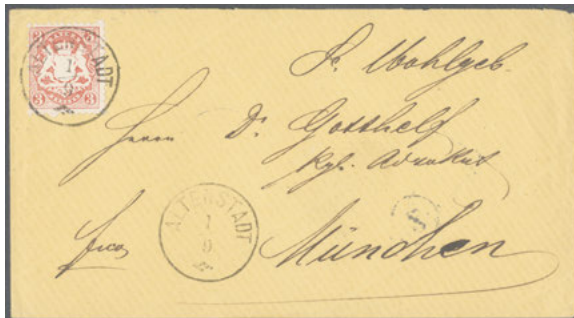 3 3
ALTENSTADT
1
9
Sr. Wohlgeb.
Herrn Dr. Gotthelf
kgl. Advokat
ALTENSTADT
1
9
frco
München